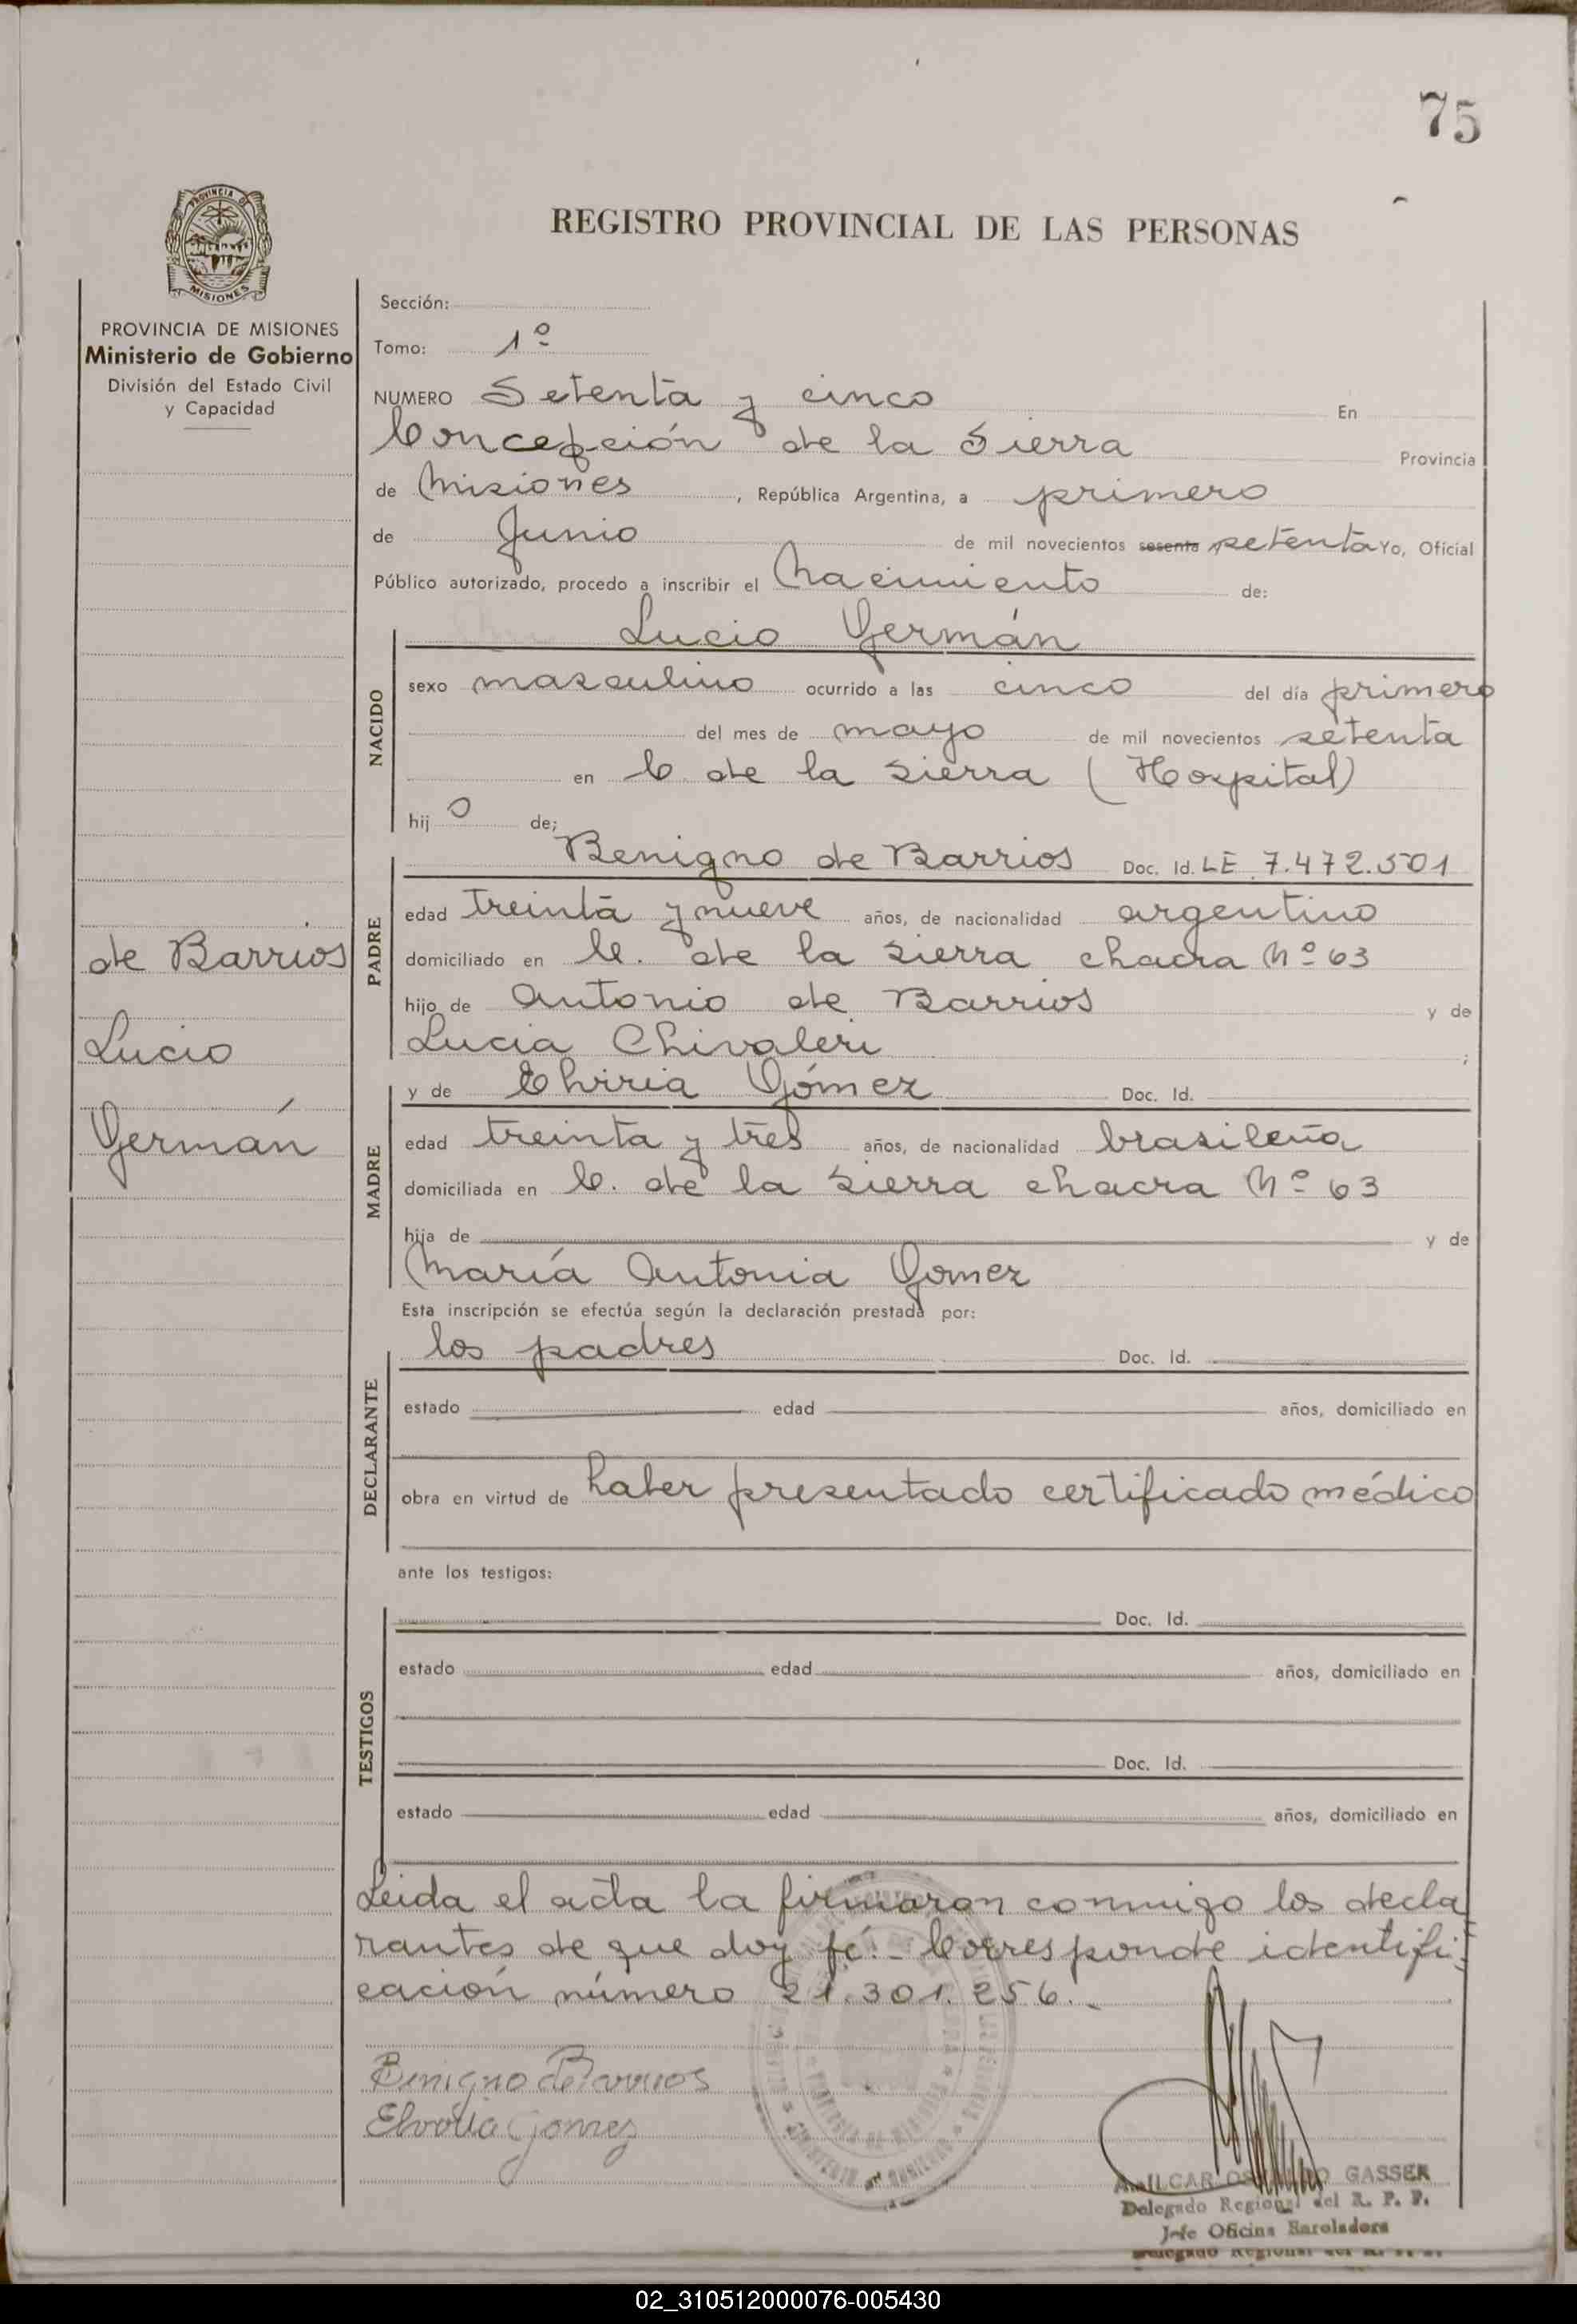 75
PROVINCIA DE
MISIONES
REGISTRO PROVINCIAL DE LAS PERSONAS
PROVINCIA DE MISIONES
Ministerio de Gobierno
División del Estado Civil
y Capacidad
de Barrios
Lucio
Germán
Sección:
Tomo: 1º
NUMERO Setenta y cinco En
Concepción de la Sierra Provincia
de Misiones, República Argentina, a primero
de Junio de mil novecientos sesenta setenta Yo, Oficial
Público autorizado, procedo a inscribir el Nacimiento de:
NACIDO
Lucio Germán
sexo masculino ocurrido a las cinco del día primero
del mes de mayo de mil novecientos setenta
en C. de la Sierra (Hospital)
hij o de;
PADRE
Benigno de Barrios Doc. Id. LE 7.472.501
edad treinta y nueve años, de nacionalidad argentino
domiciliado en C. de la Sierra chacra Nº 63
hijo de Antonio de Barrios y de
Lucia Chivaleri ;
MADRE
y de Gómez Doc. Id.
edad treinta y tres años, de nacionalidad brasileña
domiciliada en C. de la Sierra chacra Nº 63
hija de y de
María Antonia Gomez
Esta inscripción se efectúa según la declaración prestada por:
DECLARANTE
los padres Doc. Id.
estado edad años, domiciliado en
obra en virtud de haber presentado certificado médico
ante los testigos:
TESTIGOS
Doc. Id.
estado edad años, domiciliado en
Doc. Id.
estado edad años, domiciliado en
Leida el acta la firmaron conmigo los decla
rantes de que doy fé.- Corresponde identifi-
cación número 21.301.256.-
Benigno de Barrios
Gomez
GASSER
Delegado Regional del R. P. P.
Jefe Oficina Enroladora
Delegado Regional del R. P. P.
02_310512000076-005430